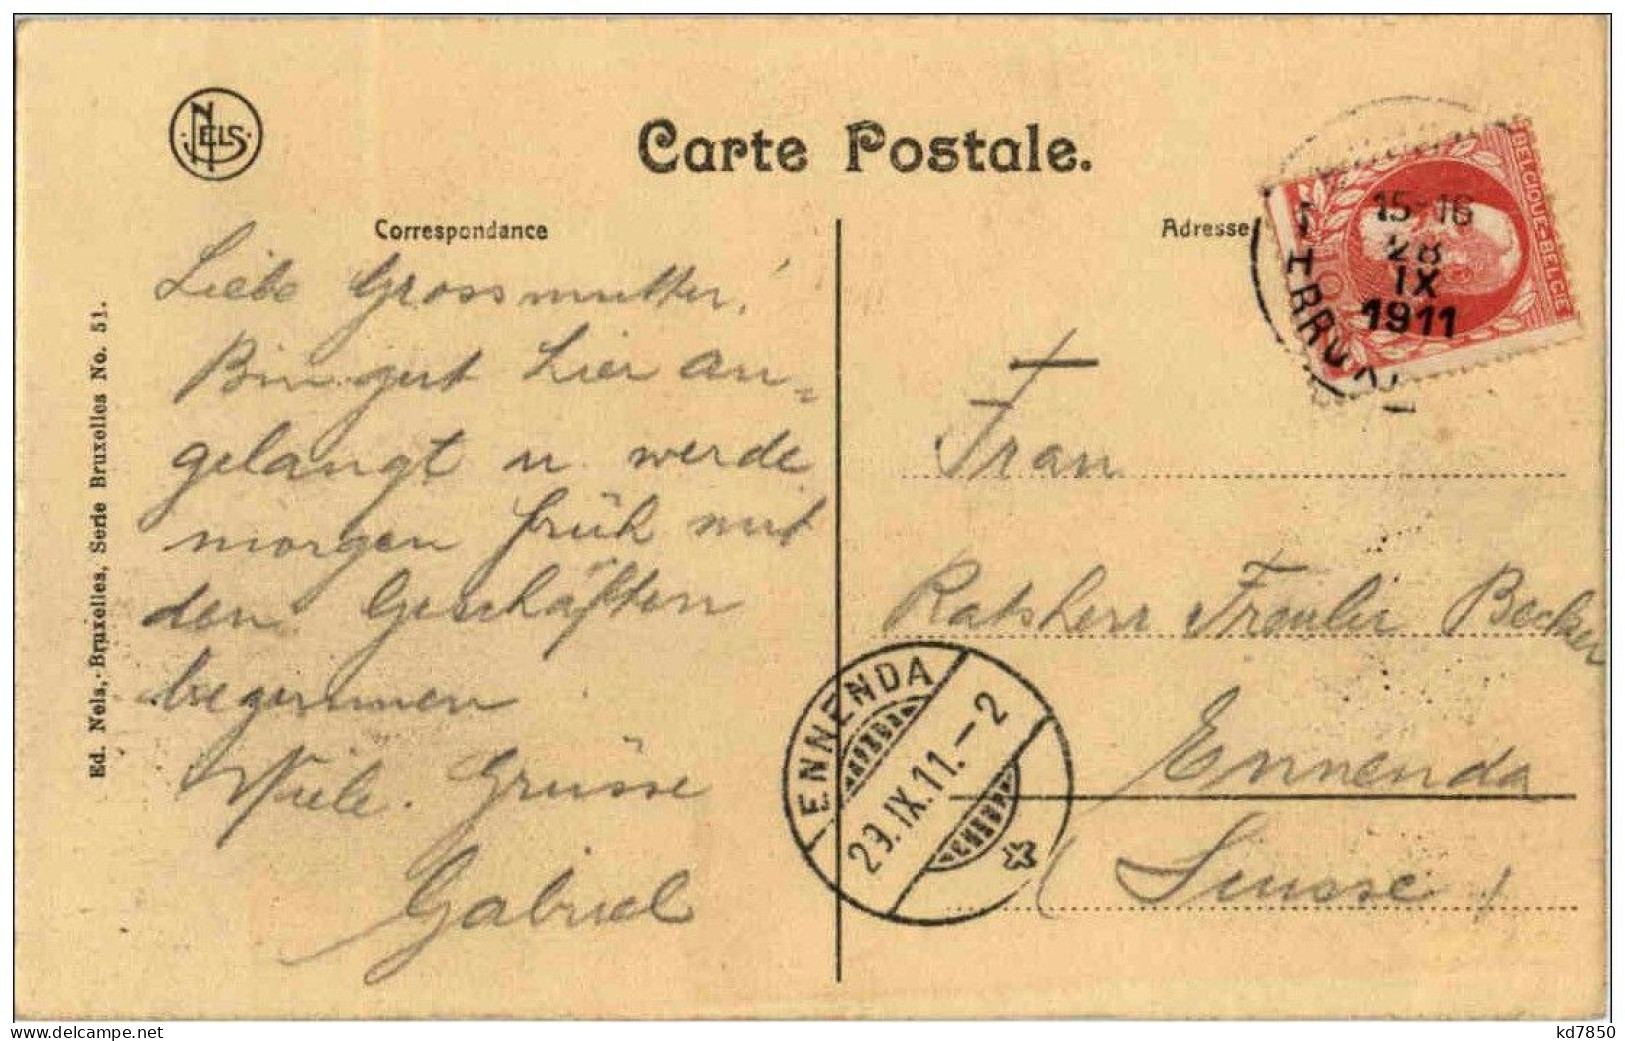 NELS
Carte Postale.
Correspondance
Adresse
Liebe Grossmutter!
Bin gut hier an=
gelangt u. werde
morgen früh mit
den Geschäften
beginnen
Viele Grüsse
Gabriel
Ed. Nels, Bruxelles, Serie Bruxelles No. 51.
BELGIQUE-BELGIË
15-16
28
IX
1911
Frau
Ratsherr Becker
Ennenda
(Suisse)
ENNENDA
29.IX.11.-2
delcampe.net
kd7850